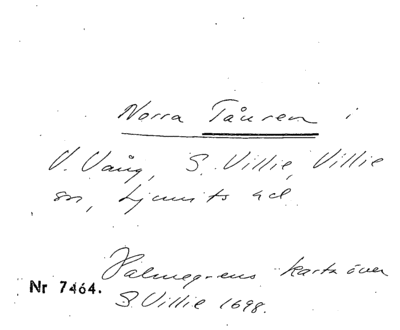 Norra Tåuren i
V. Vång, S. Villie, Villie
sn, Ljunits hd.
Halmegrens karta över
Nr 7464.
S. Villie 1698.